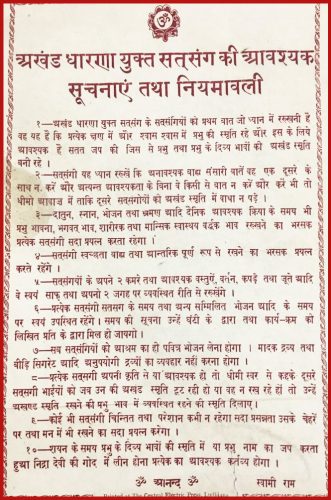 ॐ
अखंड धारणा युक्त सत्संग की आवश्यक
सूचनाएं तथा नियमावली
१—अखंड धारणा युक्त सतसंग के सतसंगियों को प्रथम बात जो ध्यान में रखनी है
वह यह है कि प्रत्येक क्षण में और श्वास श्वास में प्रभु की स्मृति रहे और इस के लिये
आवश्यक है सतत जप की जिस से प्रभु तथा प्रभु के दिव्य भावों की अखंड स्मृति
बनी रहे ।
२—सतसंगी यह ध्यान रक्खें कि अनावश्यक बाह्य संसारी बातें वह एक दूसरे के
साथ न करें और अत्यन्त आवश्यकता के बिना वे किसी से बात न करें और करें भी तो
धीमी आवाज में ताकि दूसरे सतसंगीयों को अखंड स्मृति में बाधा न पड़े ।
३—दातुन, स्नान, भोजन तथा भ्रमण आदि दैनिक आवश्यक क्रिया के समय भी
प्रभु भावना, भगवत् भाव, शारीरिक तथा मान्सिक स्वास्थय वर्द्धक भाव रखने का भरसक
प्रत्येक सतसंगी सदा प्रयत्न करता रहेगा ।
४—सतसंगी स्वच्छता बाह्य तथा आन्तरिक पूर्ण रूप से रखने का भरसक प्रयत्न
करते रहेंगे ।
५—सतसंगीयों के अपने २ कमरे तथा आवश्यक वस्तुएँ, बर्तन, कपड़े तथा जूते आदि
वे स्वयं साफ़ तथा अपनी २ जगह पर व्यवस्थित रीति से रक्खेंगे ।
६—प्रत्येक सतसंगी सतसंग के समय तथा अन्य सम्मिलित भोजन आदि के समय
पर स्वयं उपस्थित रहेंगे । समय की सूचना उन्हें घंटी के द्वारा तथा कार्य-क्रम को
लिखित प्रति के द्वारा मिल ही जायगी ।
७—सब सतसंगियों को आश्रम का ही पवित्र भोजन लेना होगा । मादक द्रव्य तथा
बीड़ि सिगरेट आदि अनुपयोगी द्रव्यों का व्यवहार नहीं करना होगा ।
८—प्रत्येक सतसंगी अपनी इति से या आवश्यक हो तो धीमी स्वर से कहके दूसरे
सतसंगी भाईयों को जब उन की अखंड स्मृति टूट रही हो या वह न रख रहे हों तो उन्हें
अखण्ड स्मृति रखने की प्रभु भाव में व्यवस्थित रहने की स्मृति दिलाए ।
९—कोई भी सतसंगी चिन्तित तथा परेशान कभी न रहेगा सदा प्रसन्नता उसके चेहरे
पर तथा मन में भी रखने का सदा प्रयत्न करेगा ।
१०—शयन के समय प्रभु के दिव्य भावों की स्मृति में या प्रभु नाम का जप करता
हुआ निद्रा देवी की गोद में लीन होना प्रत्येक का आवश्यक कर्तव्य होगा ।
ॐ आनन्द ॐ
स्वामी राम
Printed at The Central Electric Press,